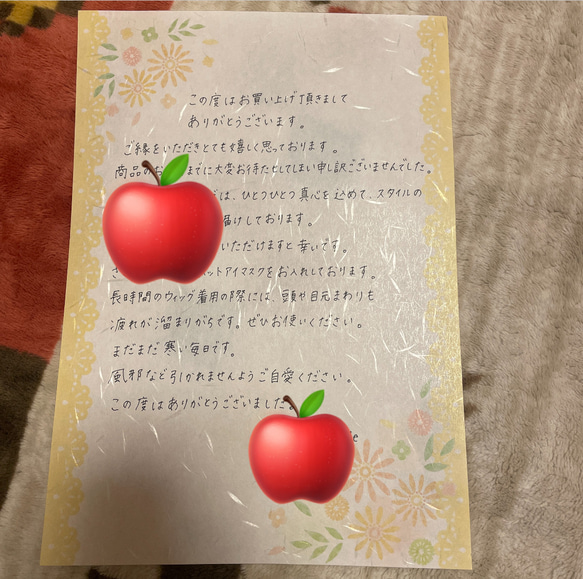 この度はお買い上げ頂きまして
ありがとうございます。
ご縁をいただきとても嬉しく思っております。
商品のお までに大変お待たせしてしまい申し訳ございませんでした。
では、ひとつひとつ真心を込めて、スタイルの
届けしております。
いただけますと幸いです。
ットアイマスクをお入れしております。
長時間のウィッグ着用の際には、頭や目元まわりも
疲れが溜まりがちです。ぜひお使いください。
まだまだ寒い毎日です。
風邪など引かれませんようご自愛ください。
この度はありがとうございました。